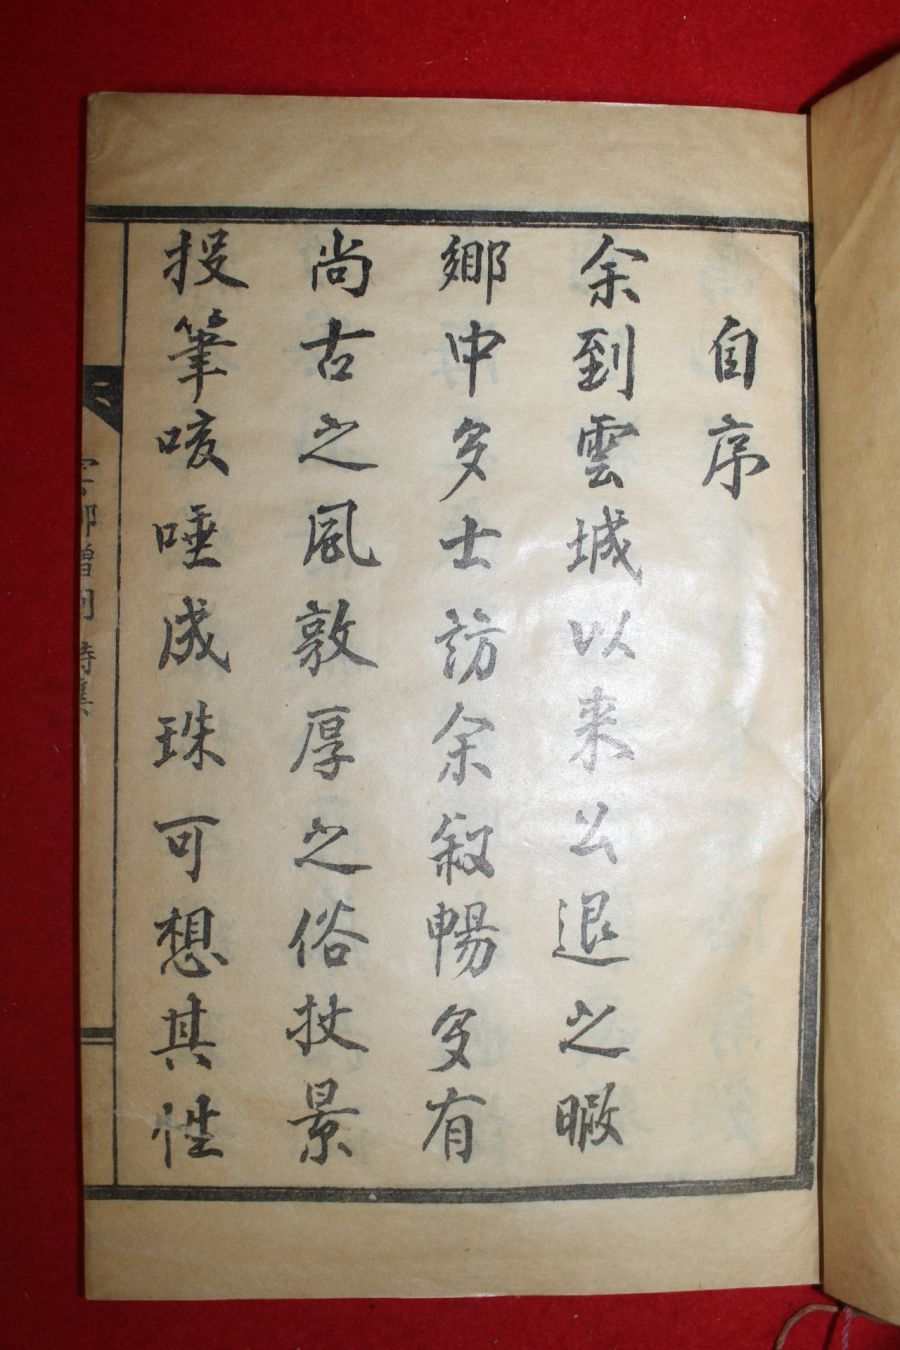 自序
余到雲城以来公退之暇
鄕中多士訪余叙暢多有
尚古之風敦厚之俗技景
投筆咳唾成珠可想其性
詩集